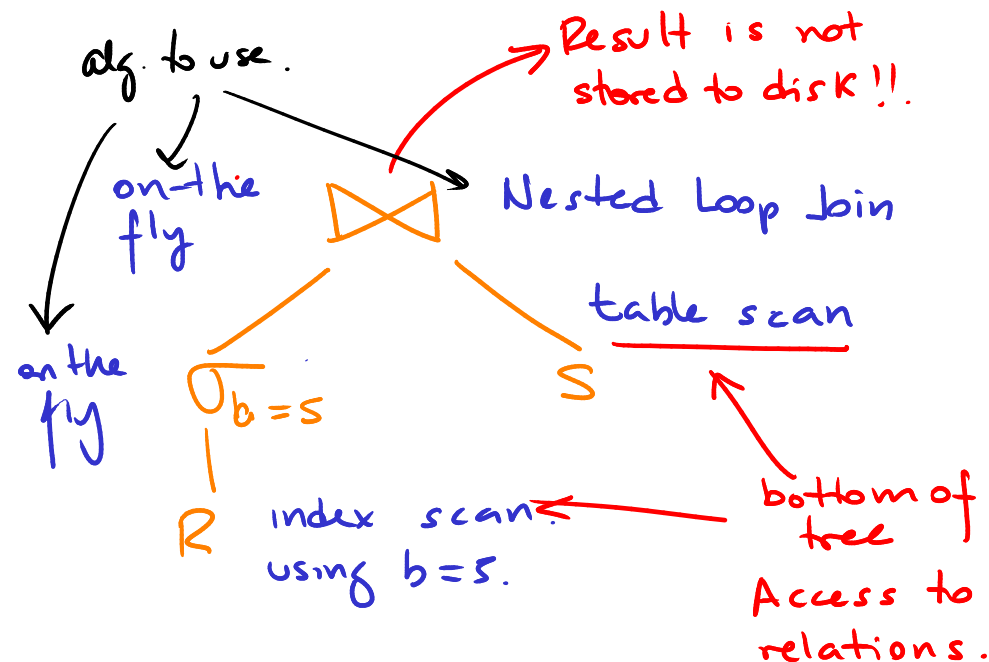 alg. to use.
Result is not
stored to disk!!.
on-the
fly
Nested Loop Join
table scan
on the
fly
σ b=5
S
R
index scan.
using b=5.
bottom of
tree
Access to
relations.